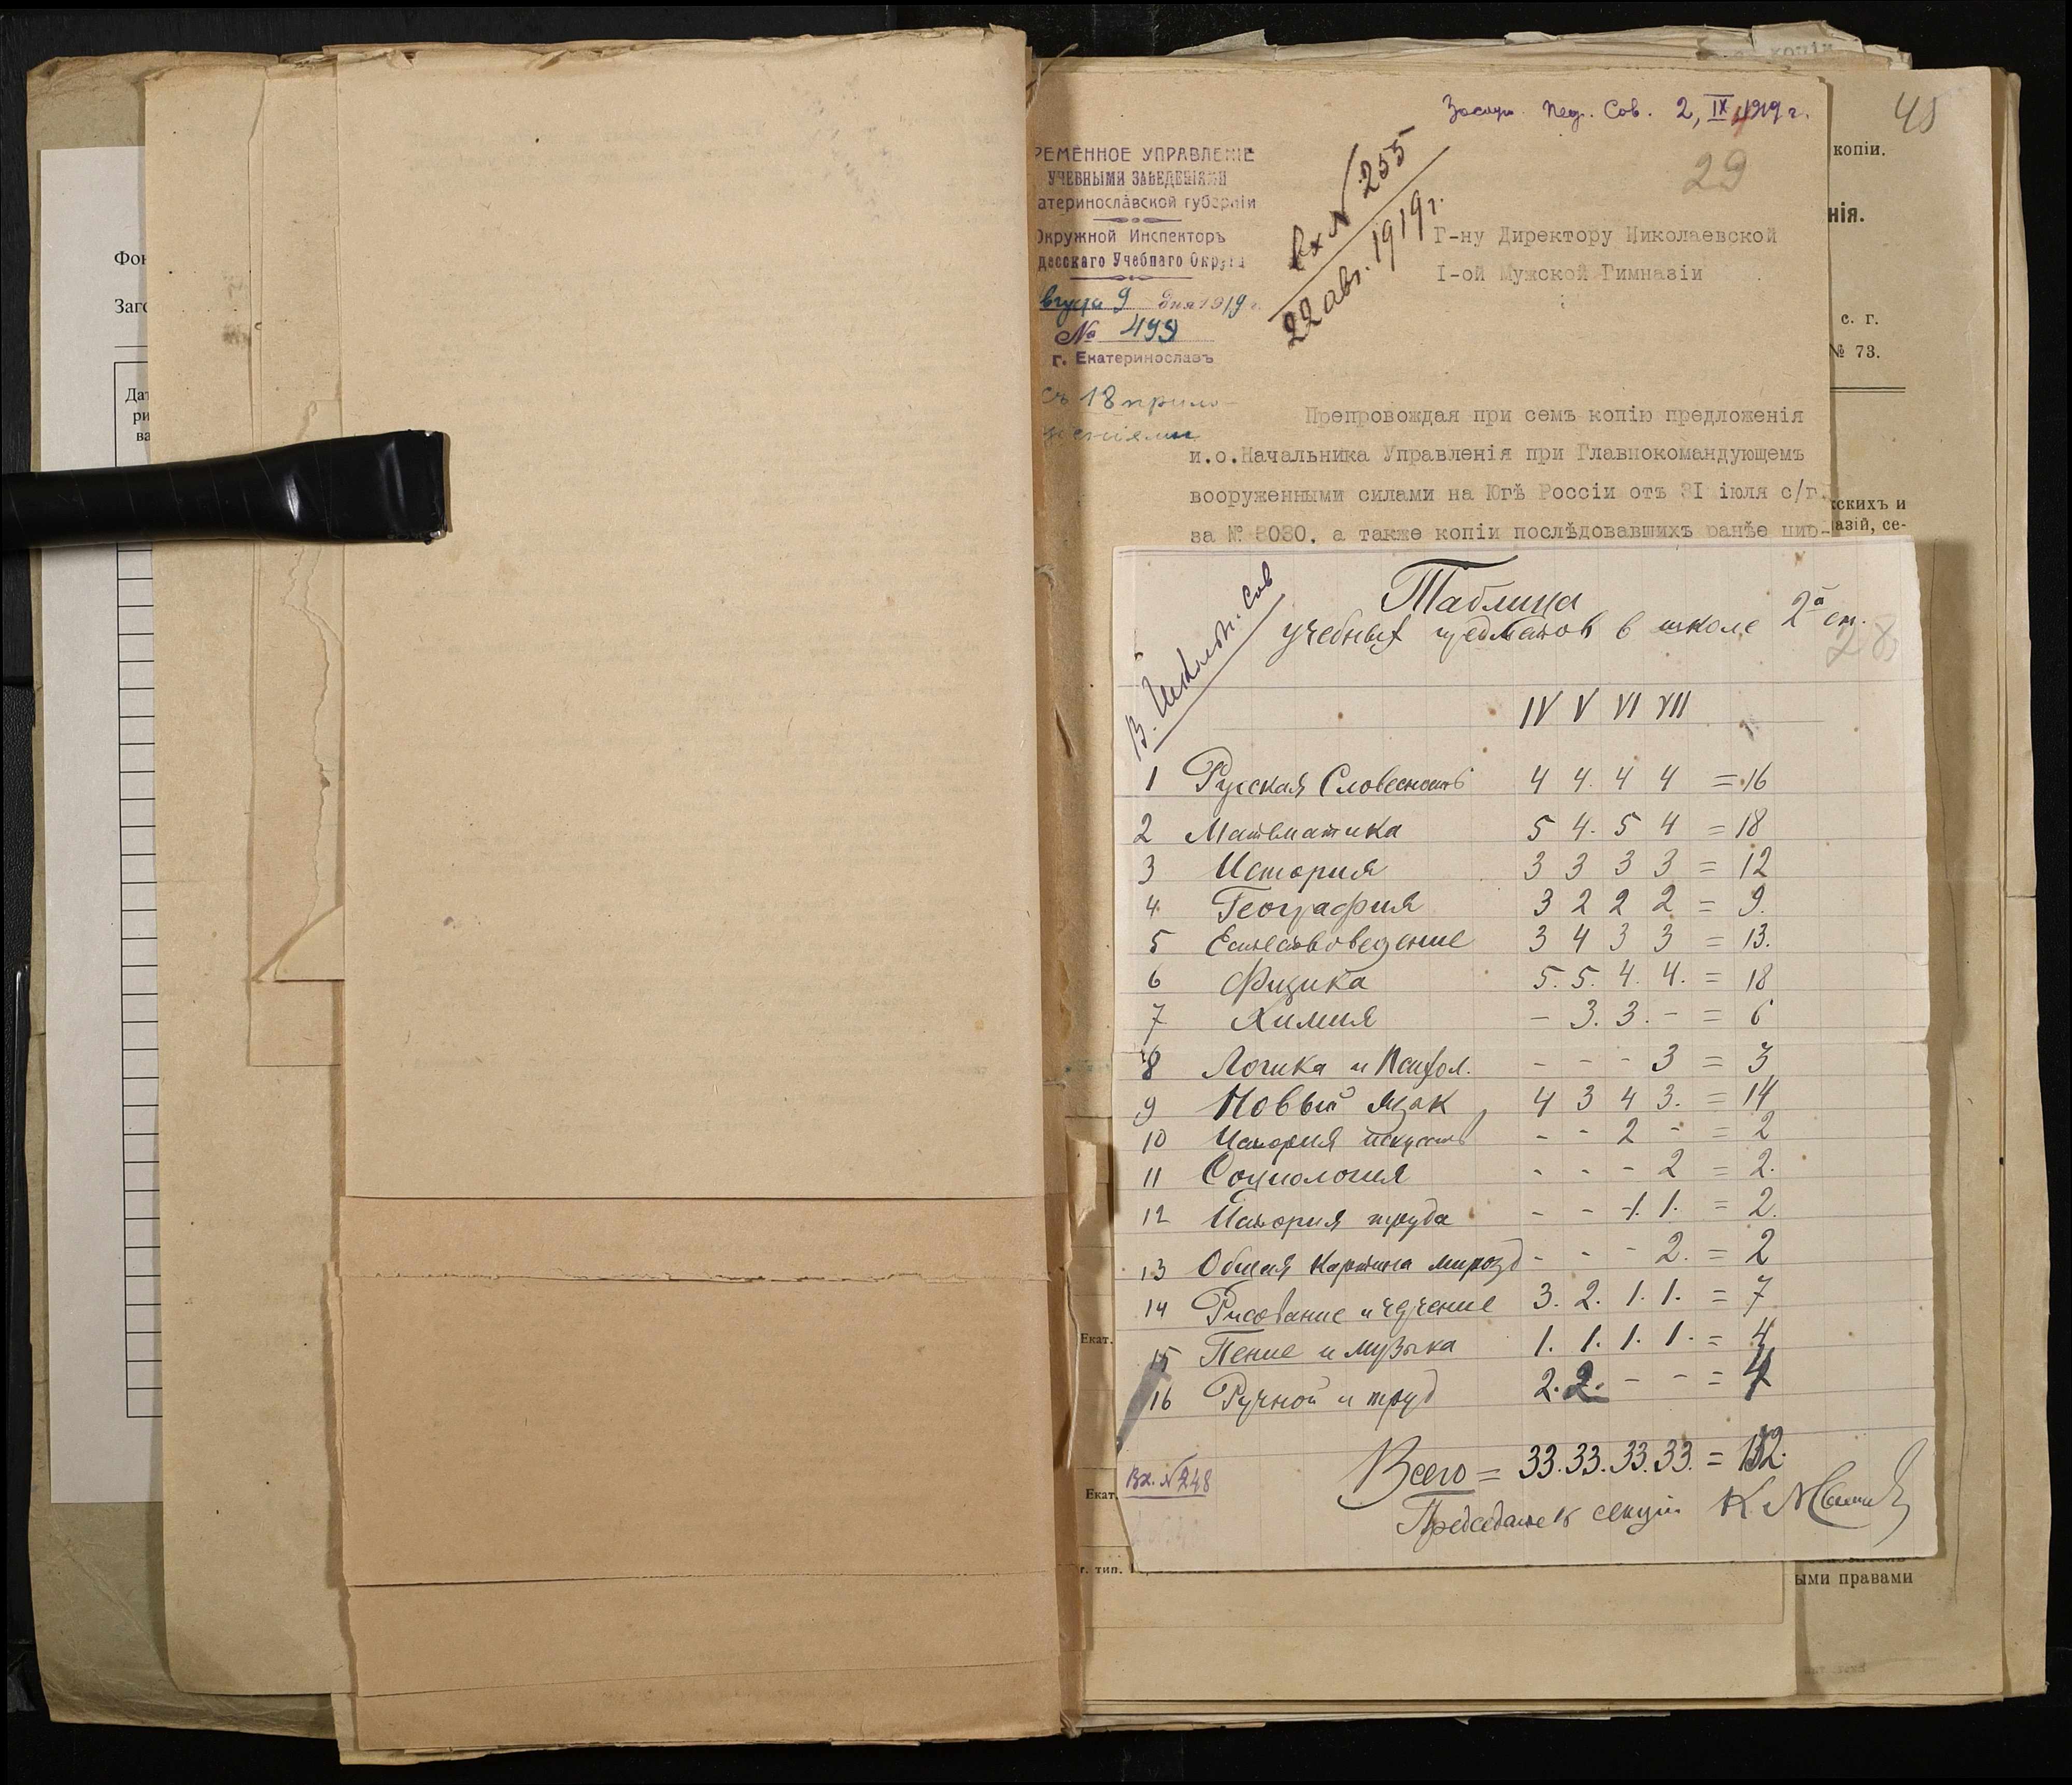 Фон
Заго
Дат
ри
ва
копіи
Засѣд. Пед. Сов. 2, IX 1919 г.
45
29
РЕМЕННОЕ УПРАВЛЕНІЕ
УЧЕБНЫМИ ЗАВЕДЕНІЯМИ
атеринославской губерніи
Окружной Инспекторъ
десскаго Учебнаго Округа
вгуста 9 дня 1919 г.
№ 499
г. Екатеринославъ
съ 18 прило-
женіями
Вх № 255
22 авг. 1919 г.
Г-ну Директору Николаевской
I-ой Мужской Гимназіи
Препровождая при семъ копію предложенія
и.о.Начальника Управленія при Главнокомандующемъ
вооруженными силами на Югѣ Россіи отъ 3I іюля с/г.
за № 8030, а также копіи послѣдовавшихъ ранѣе цир-
копіи.
нія.
с. г.
№ 73.
скихъ и
азій, се-
Таблица
учебных предметов в школе 2й ст.
28
В. Школьн. Сов
IV V VI VII
1 Русская Словесность 4 4. 4 4 = 16
2 Математика 5 4. 5 4 = 18
3 История 3 3 3 3 = 12
4 География 3 2 2 2 = 9.
5 Естествоведение 3 4 3 3 = 13.
6 Физика 5. 5. 4. 4. = 18
7 Химия - 3. 3. - = 6
8 Логика и Психол. - - - 3 = 3
9 Новый язык 4 3 4 3. = 14
10 История искусств - - 2 - = 2
11 Социология - - - 2 = 2.
12 История труда - - 1. 1. = 2.
13 Общая картина мирозд - - - 2. = 2
14 Рисование и черчение 3. 2. 1. 1. = 7
15 Пение и музыка 1. 1. 1. 1. = 4
16 Ручной и труд 2. 2. - - = 4
Всего = 33. 33. 33. 33. = 132.
Председатель секции К.
Вх. № 248
Екат.
Екат.
г. тип.
ыми правами